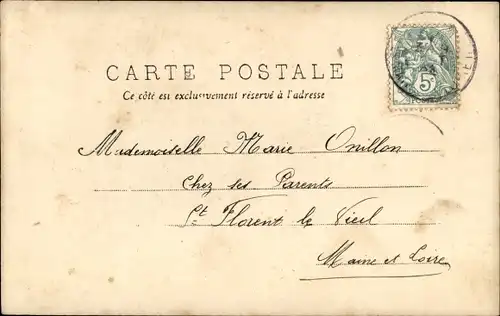 CARTE POSTALE
Ce côté est exclusivement réservé à l'adresse
5c
Mademoiselle Marie Onillon
Chez ses Parents
St Florent le Vieil
Maine et Loire